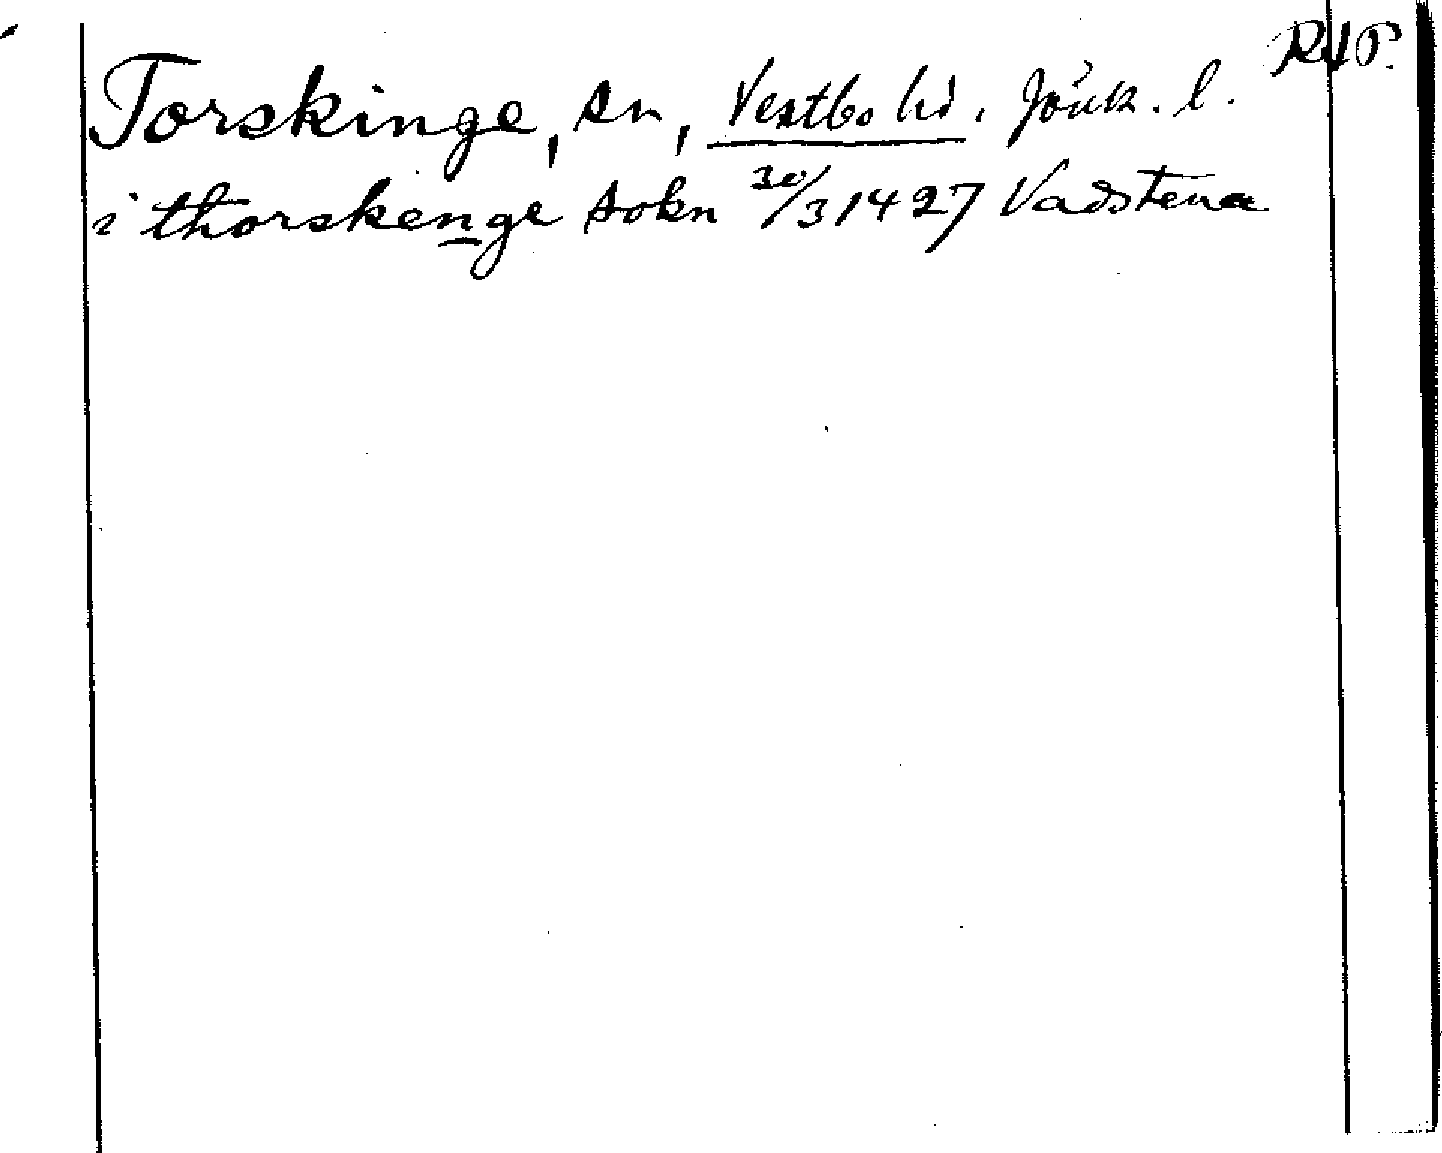 RAP.
Torskinge, sn, Vestbo hd. Jönk. l.
i thorskenge sokn 30/3 1427 Vadstena